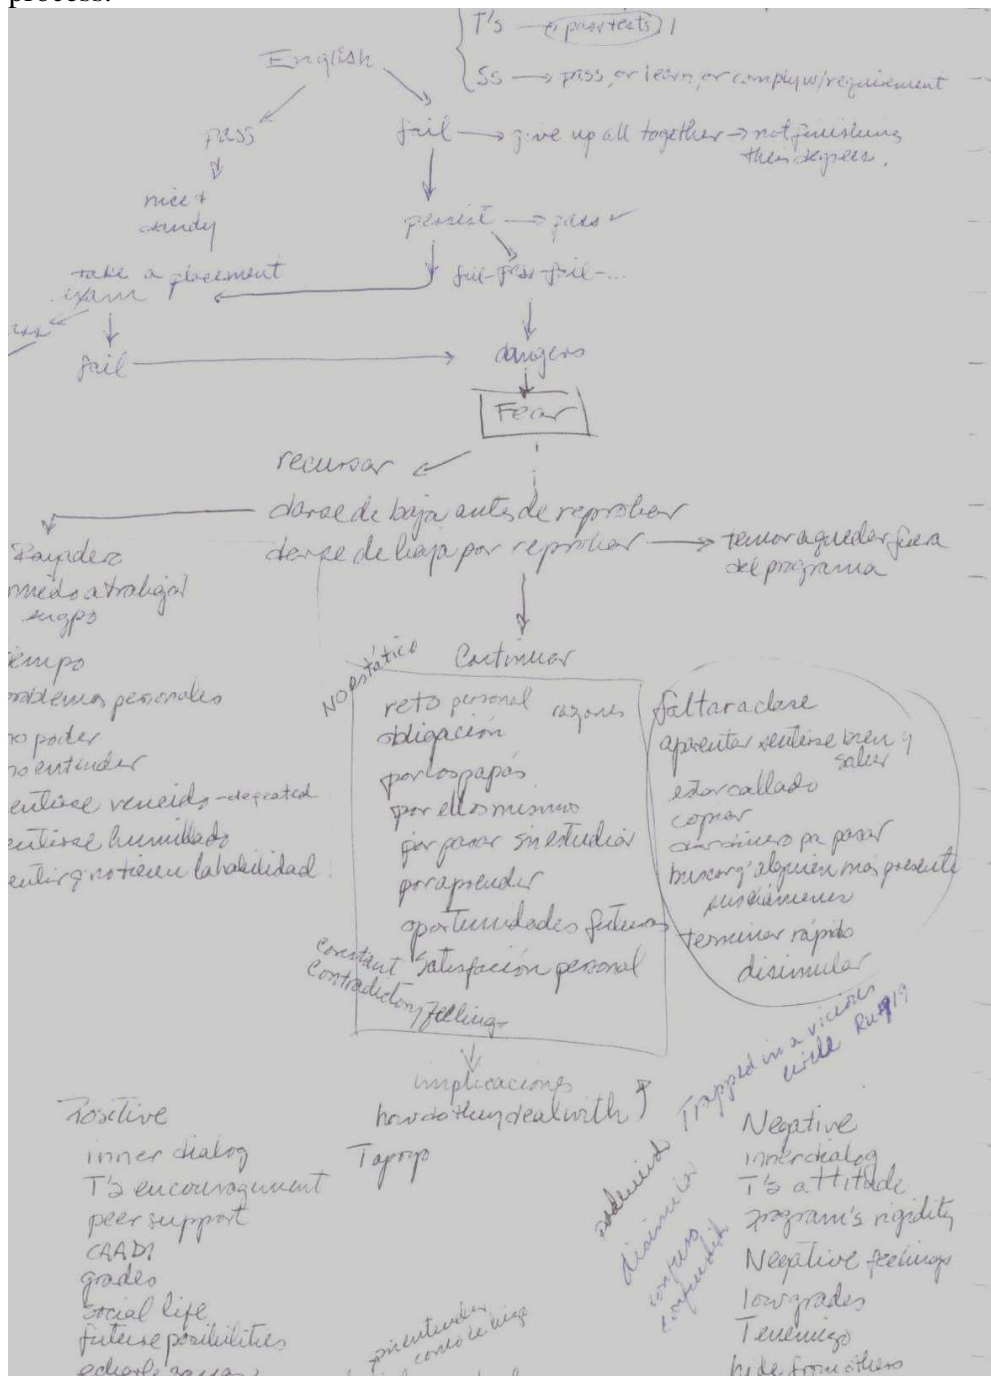 process.
T's → pass tests
English
Ss → pass, or learn, or comply w/requirement
pass
fail → give up all together → not finishing
their degrees.
nice +
dandy
persist → pass ✓
take a placement
exam
fail-pass-fail-...
fail
dangers
Fear
recursar
darse de baja antes de reprobar
darse de baja por reprobar → temor a quedar fuera
del programa
miedo a trabajar
en gpo
problemas personales
no poder
no entender
sentirse vencido - defeated
sentirse humillado
la habilidad
No estático
Continuar
reto personal razones
obligación
por los papás
por ellos mismos
por pasar sin estudiar
por aprender
oportunidades futuras
satisfacción personal
Constant
Contradictory feelings
faltar a clase
aparentar sentirse bien y
saber
estar callado
copiar
dar dinero pa pasar
buscar q' alguien más presente
sus exámenes
terminar rápido
disimular
Trapped in a vicious
circle
implicaciones
how do they deal with
Positive
inner dialog
T's encouragement
peer support
CAADI
grades
social life
future posibilities
Negative
inner dialog
T's attitude
program's rigidity
Negative feelings
low grades
hide from others
disimular
confuso